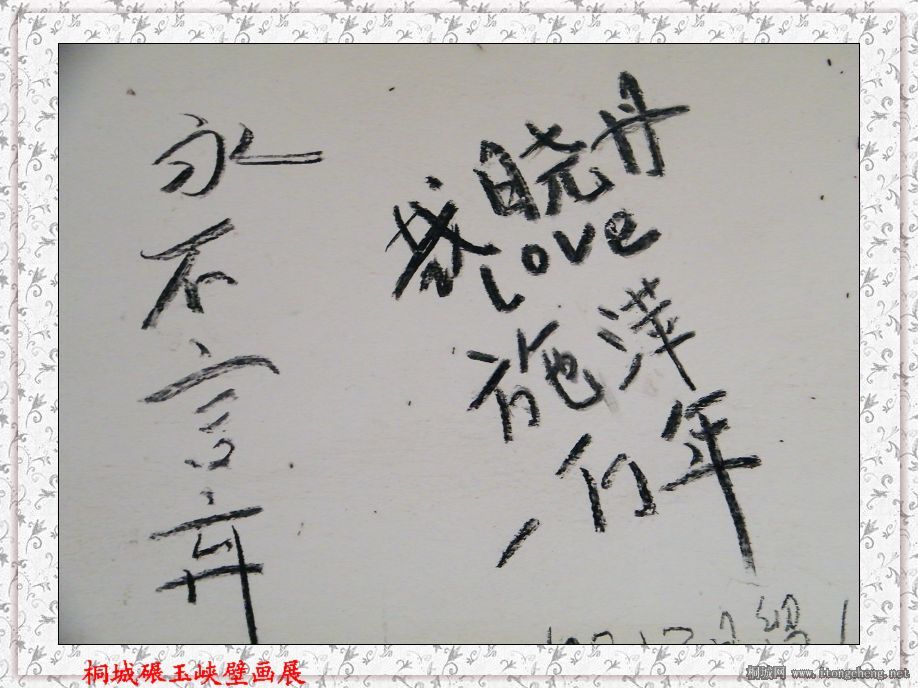 永不言弃
晓丹
Love
施洋
一百年
桐城碾玉峡壁画展
桐城网 www.itongcheng.net